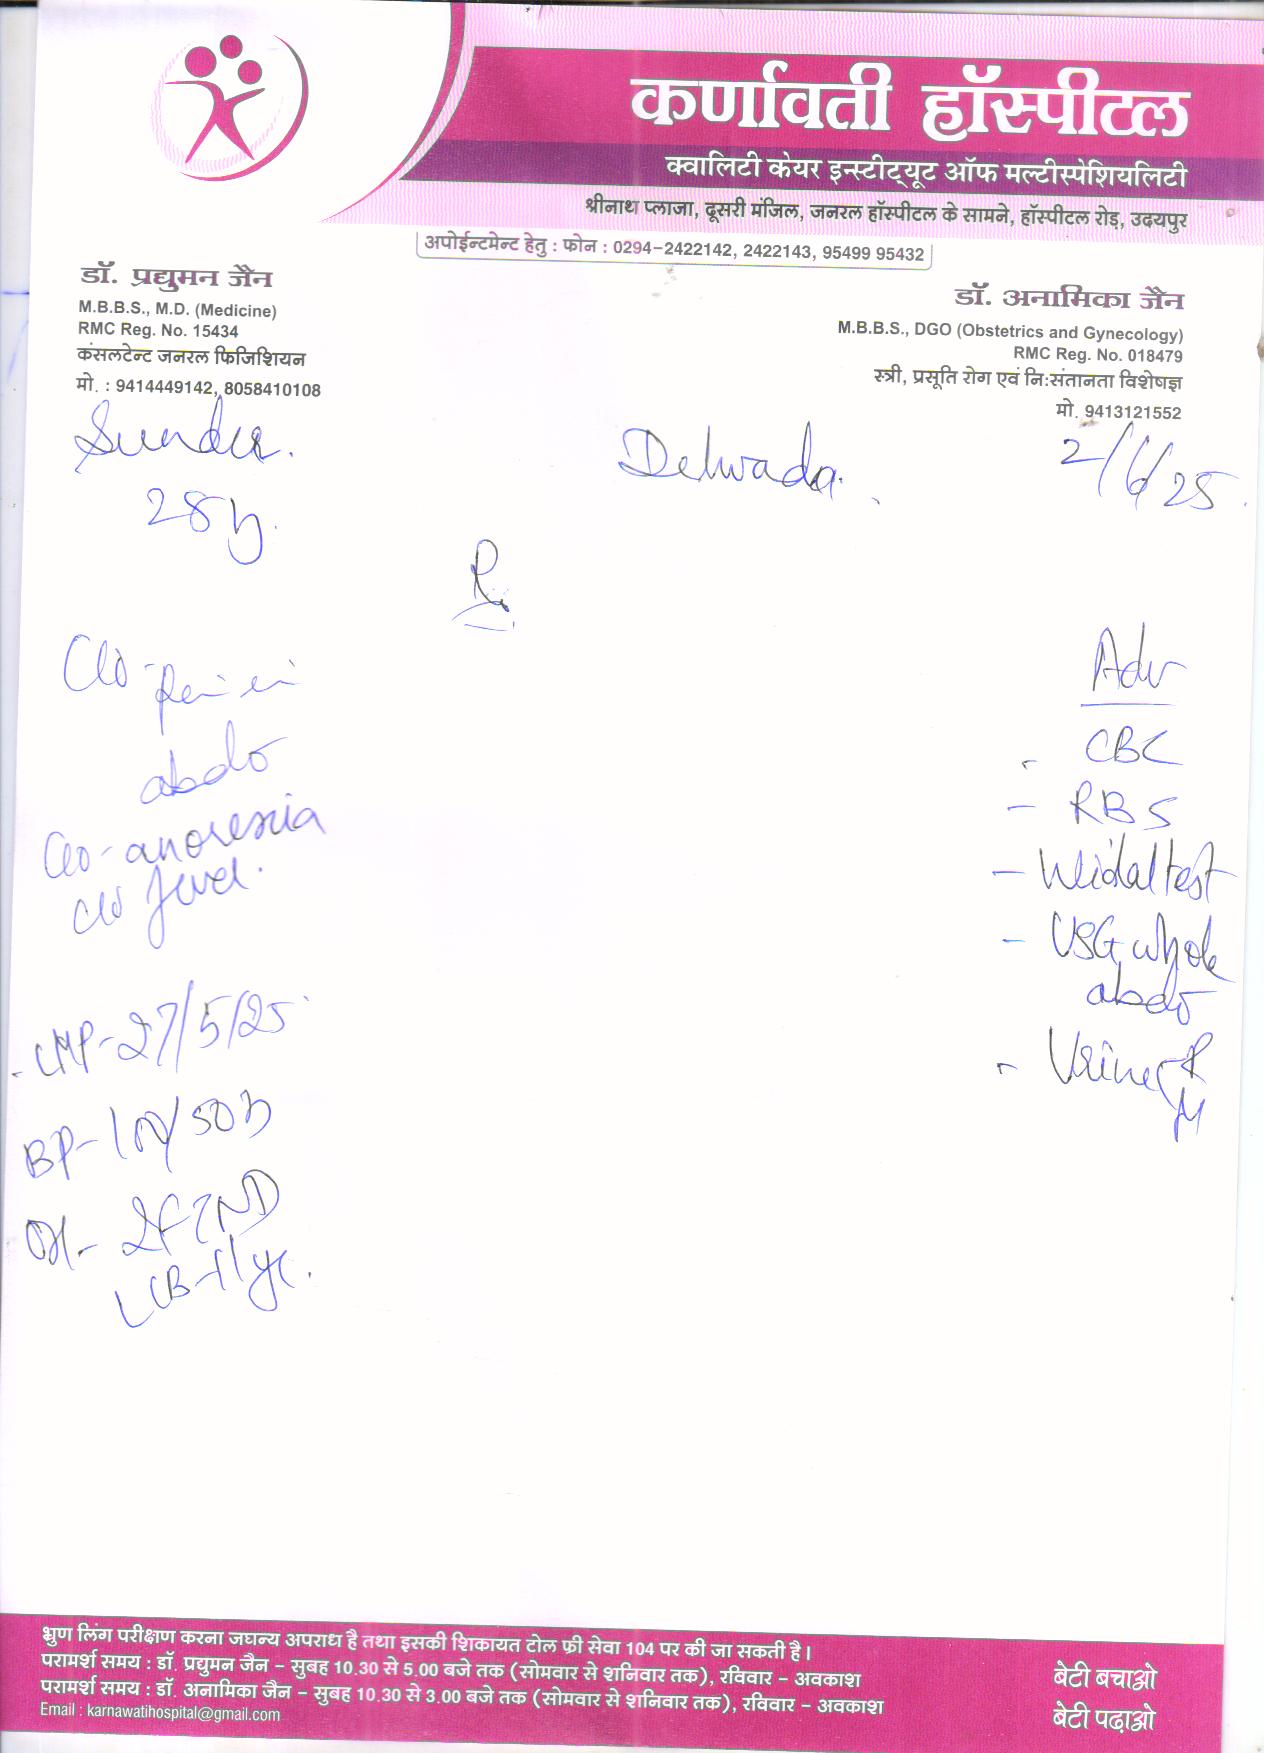 कर्णावती हॉस्पीटल
क्वालिटी केयर इन्स्टीट्यूट ऑफ मल्टीस्पेशियलिटी
श्रीनाथ प्लाजा, दूसरी मंजिल, जनरल हॉस्पीटल के सामने, हॉस्पीटल रोड़, उदयपुर
अपोईन्टमेन्ट हेतु : फोन : 0294-2422142, 2422143, 95499 95432
डॉ. प्रद्युमन जैन
M.B.B.S., M.D. (Medicine)
RMC Reg. No. 15434
कंसलटेन्ट जनरल फिजिशियन
मो. : 9414449142, 8058410108
डॉ. अनामिका जैन
M.B.B.S., DGO (Obstetrics and Gynecology)
RMC Reg. No. 018479
स्त्री, प्रसूति रोग एवं नि:संतानता विशेषज्ञ
मो. 9413121552
Delwada 2/6/25
28y
C/o - Pain in
abdo
C/o - anorexia
C/o fever.
- LMP - 27/5/25
BP - 100/50
OH - 2FTND
LCB - 1 yr.
Adv
- CBC
- RBS
- Widal test
- USG whole
abdo
- Urine R
M
भ्रुण लिंग परीक्षण करना जघन्य अपराध है तथा इसकी शिकायत टोल फ्री सेवा 104 पर की जा सकती है।
परामर्श समय : डॉ. प्रद्युमन जैन - सुबह 10.30 से 5.00 बजे तक (सोमवार से शनिवार तक), रविवार - अवकाश
परामर्श समय : डॉ. अनामिका जैन - सुबह 10.30 से 3.00 बजे तक (सोमवार से शनिवार तक), रविवार - अवकाश
Email : karnawatihospital@gmail.com
बेटी बचाओ
बेटी पढ़ाओ